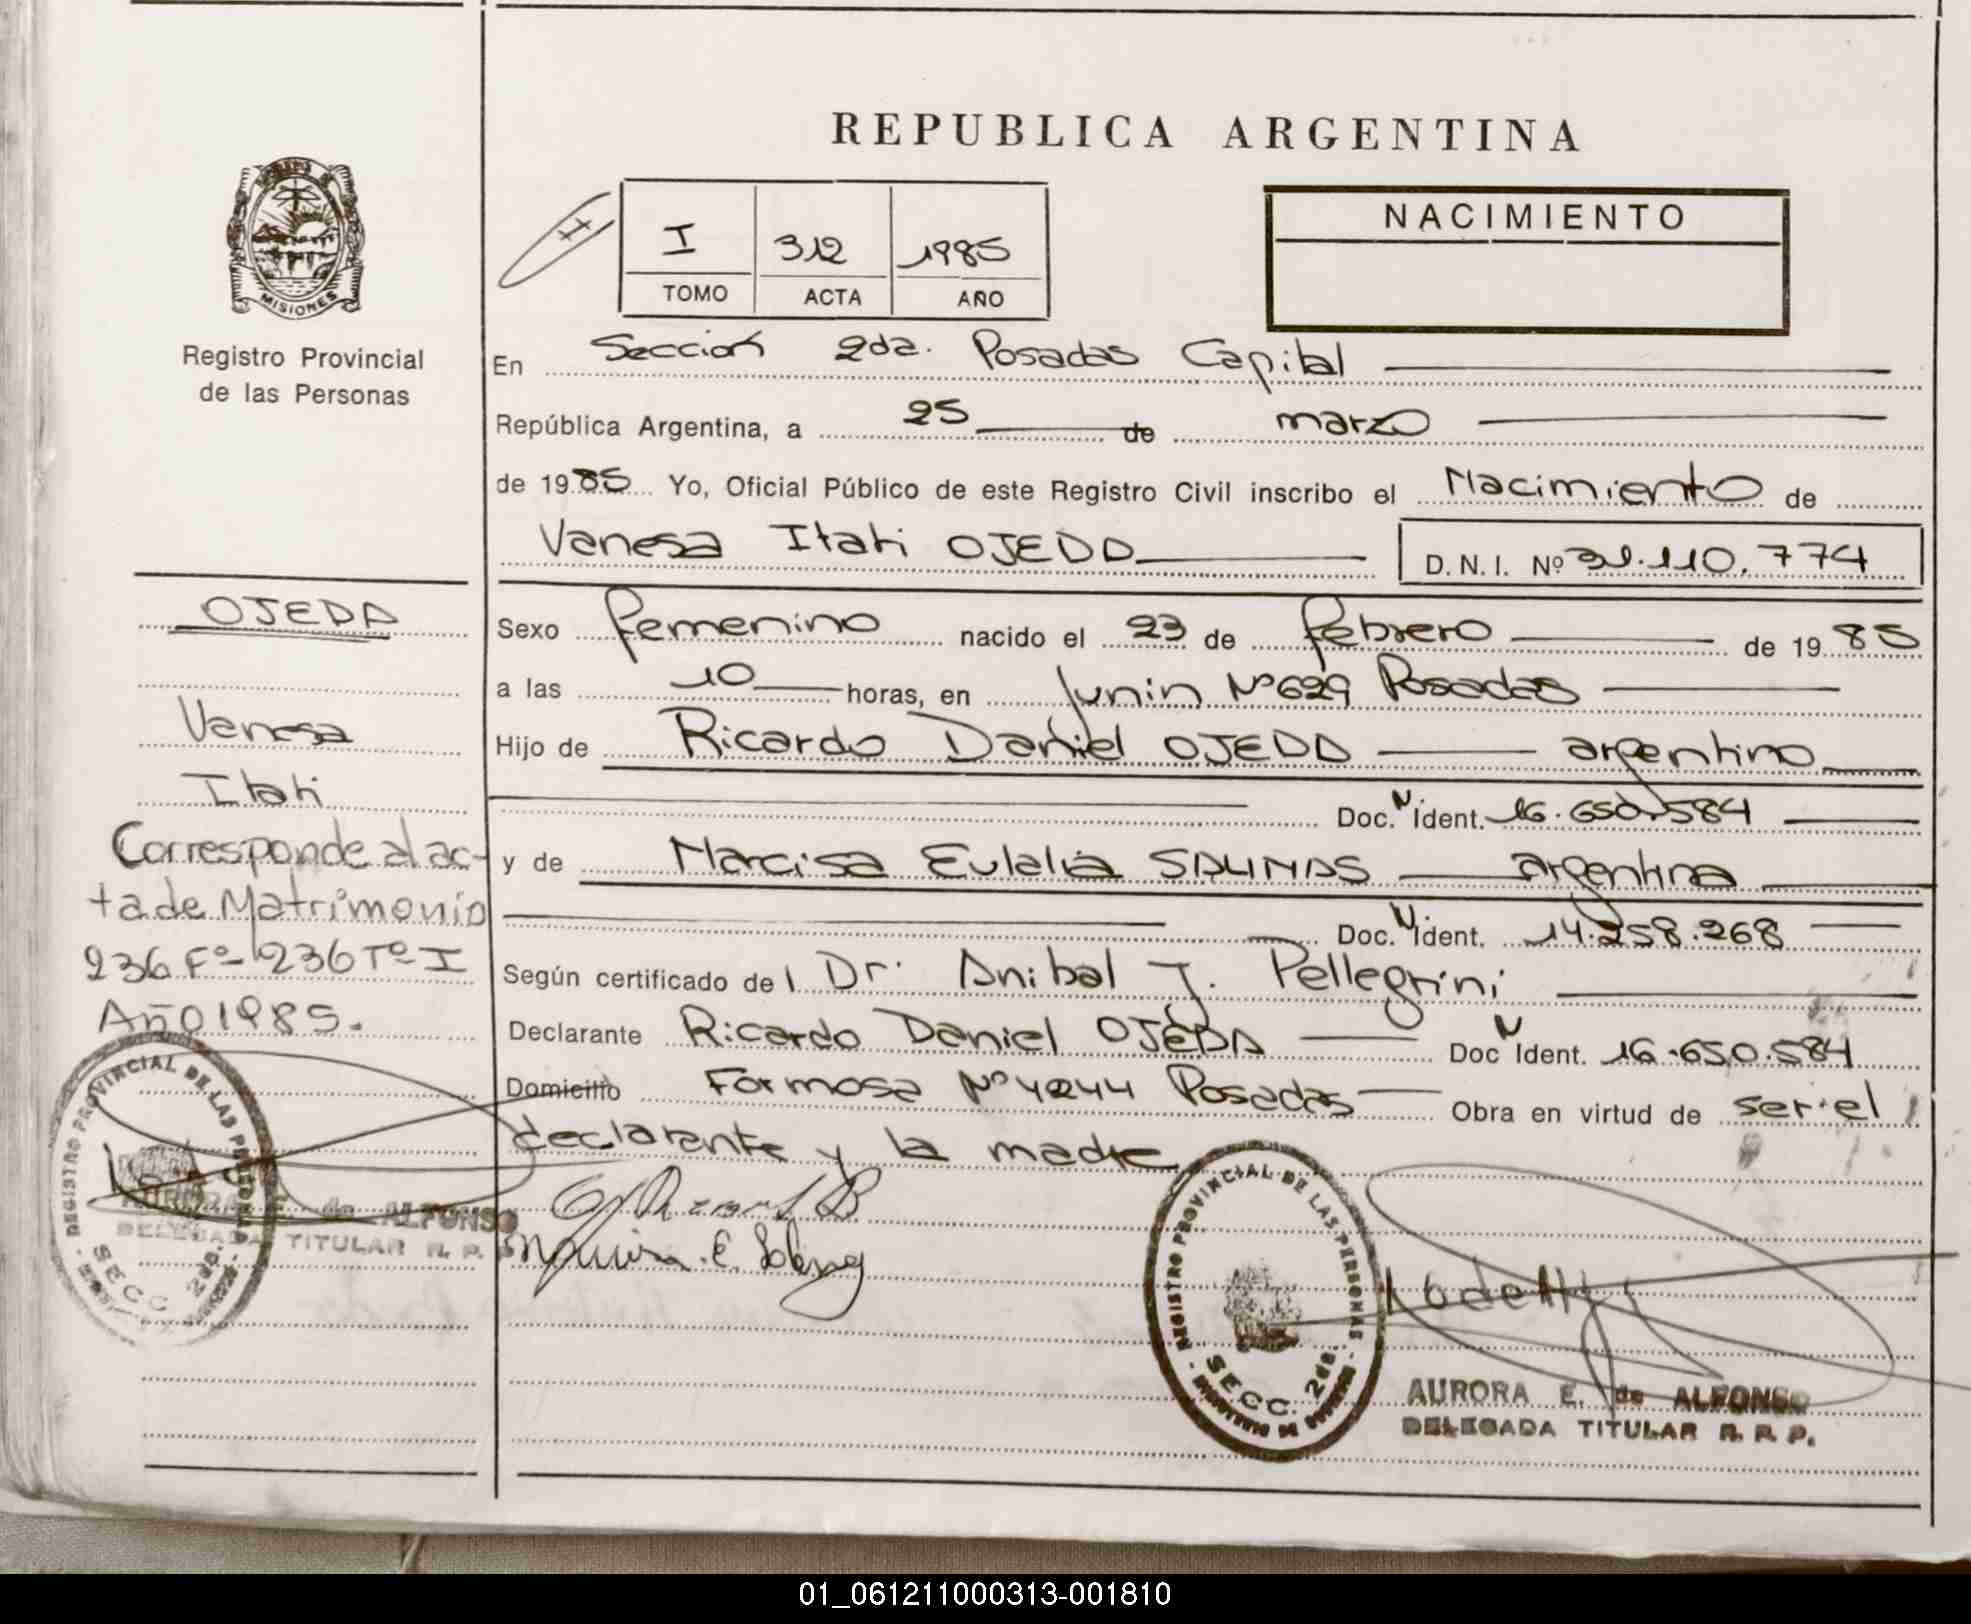 REPUBLICA ARGENTINA
MISIONES
Registro Provincial
de las Personas
I 312 1985
TOMO ACTA AÑO
NACIMIENTO
En Sección 2da. Posadas Capital
República Argentina, a 25 de marzo
de 1985 Yo, Oficial Público de este Registro Civil inscribo el Nacimiento de
Vanesa Itati OJEDA
D.N.I. Nº 31.110.774
Sexo femenino nacido el 23 de febrero de 1985
a las 10 horas, en Junin Nº 629 Posadas
Hijo de Ricardo Daniel OJEDA argentino
Doc. N Ident. 16.650.584
y de Narcisa Eulalia SALINAS argentina
Doc. N Ident. 14.258.268
Según certificado del Dr. Anibal J. Pellegrini
Declarante Ricardo Daniel OJEDA Doc N Ident. 16.650.584
Domicilio Formosa Nº 4244 Posadas Obra en virtud de ser el
declarante y la madre
OJEDA
Vanesa
Itati
Corresponde al ac-
ta de Matrimonio
236 Fº 236 Tº I
Año 1985.
REGISTRO PROVINCIAL DE LAS PERSONAS
SECC. 2da.
AURORA E. de ALFONSO
DELEGADA TITULAR R. P. P.
REGISTRO PROVINCIAL DE LAS PERSONAS
SECC. 2da.
AURORA E. de ALFONSO
DELEGADA TITULAR R. P. P.
01_061211000313-001810